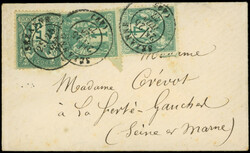 Madame
Madame Crévot
à La Ferté-Gaucher
(Seine et Marne)